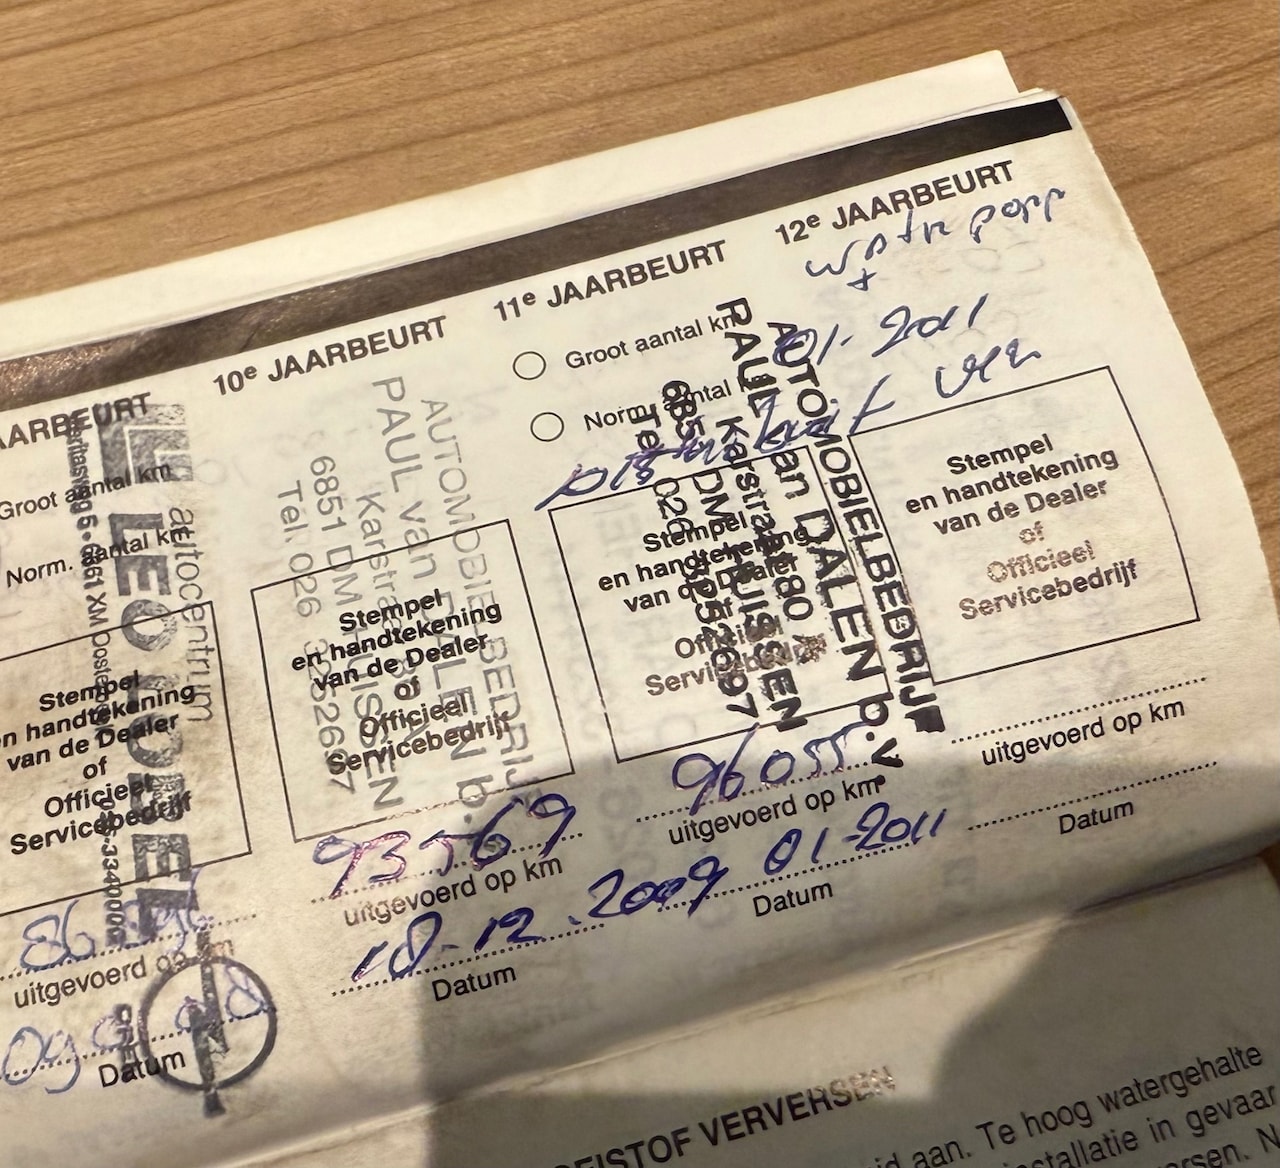 12e JAARBEURT
Waterpomp
+
01-2011
11e JAARBEURT
Groot aantal km
Norm. aantal km
10e JAARBEURT
AARBEURT
Groot aantal km
Norm. aantal km
autocentrum
LEO
6861 XM Ooste
-3340000
OPEL
Stempel
en handtekening
van de Dealer
of
Officieel
Servicebedrijf
uitgevoerd op km
Datum
AUTOMOBIELBEDRIJF
PAUL van DALEN b.v.
Karstraat
6851 DM HUISSEN
Tel. 026 3252697
Stempel
en handtekening
van de Dealer
of
Officieel
Servicebedrijf
93569
uitgevoerd op km
18-12-2009
Datum
AUTOMOBIELBEDRIJF
PAUL van DALEN b.v.
Karstraat 80
DM HUISSEN
Tel. 026 3252697
Stempel
en handtekening
van de Dealer
of
Officieel
Servicebedrijf
96055
uitgevoerd op km
01-2011
Datum
Stempel
en handtekening
van de Dealer
of
Officieel
Servicebedrijf
uitgevoerd op km
Datum
VERVERSEN
aan. Te hoog watergehalte
installatie in gevaar